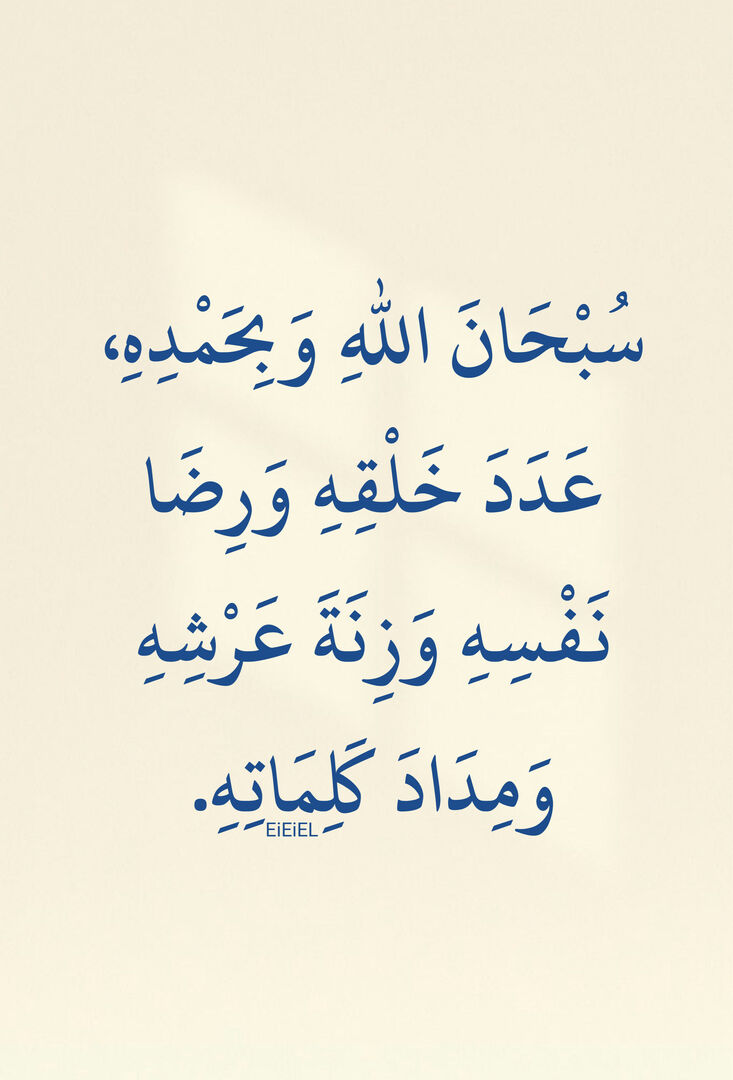 سُبْحَانَ اللهِ وَبِحَمْدِهِ،
عَدَدَ خَلْقِهِ وَرِضَا
نَفْسِهِ وَزِنَةَ عَرْشِهِ
وَمِدَادَ كَلِمَاتِهِ.
EiEiEL